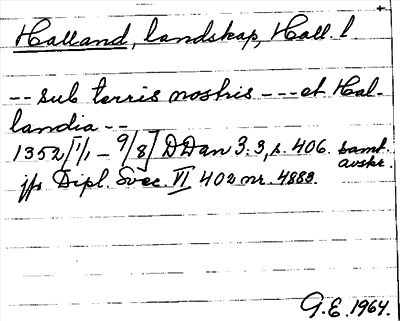 Halland, landskap, Hall. l.
-- sub terris nostris --- et Hal-
landia --
1352 [1/1 - 9/8] DDan 3:3, s. 406. samt. avskr.
jfr Dipl. Svec. VI 402 nr. 4888.
G.E. 1964.